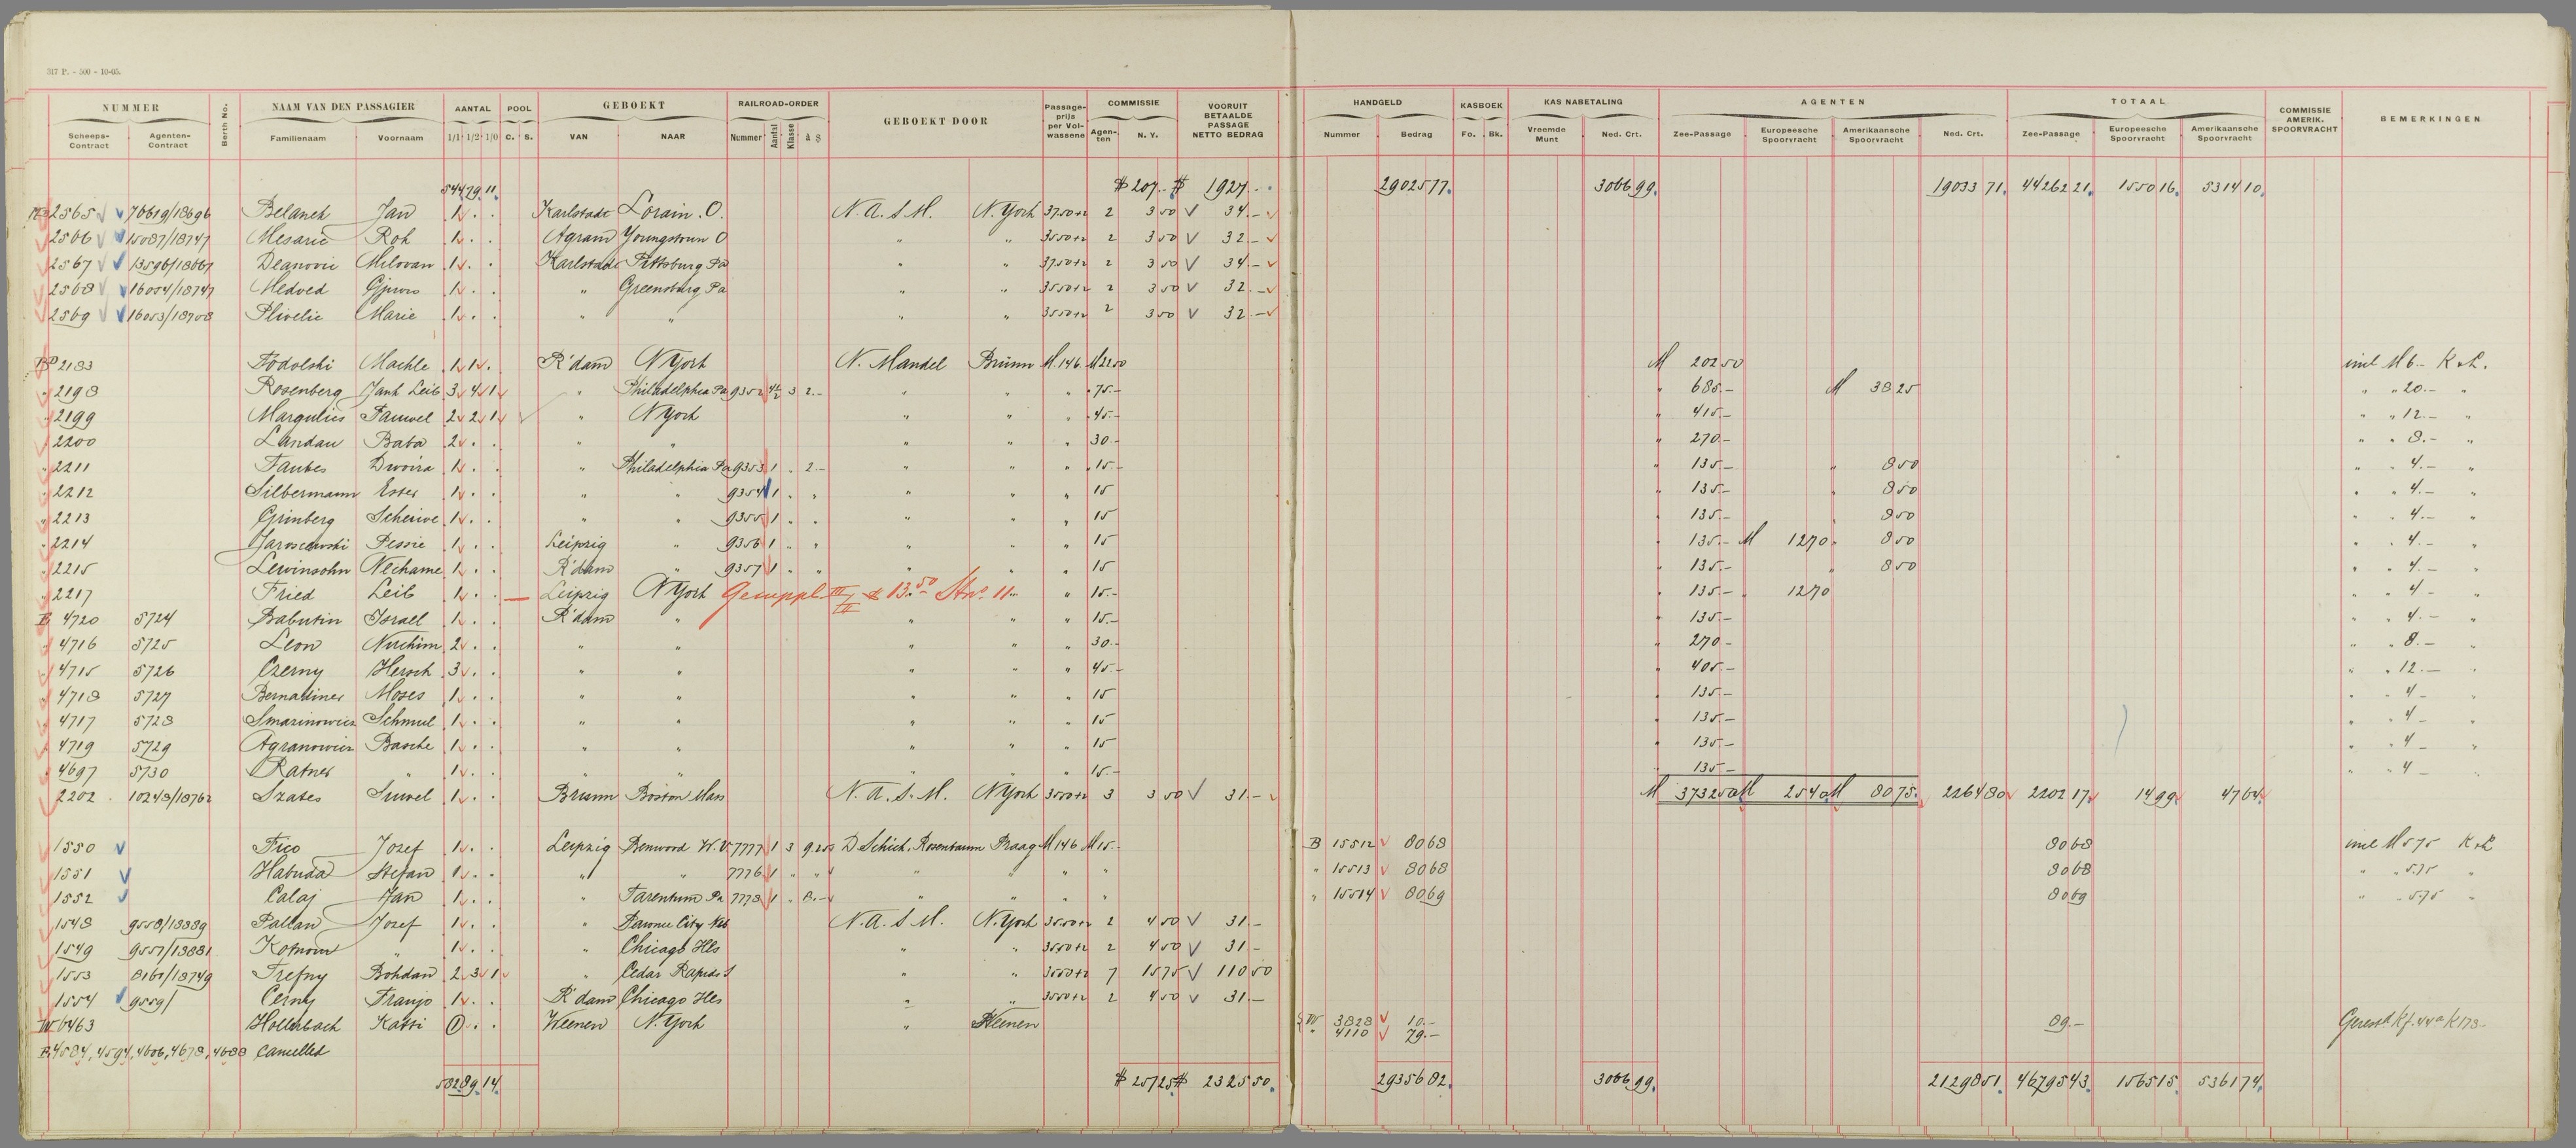 317 P. - 500 - 10-05.
NUMMER NAAM VAN DEN PASSAGIER AANTAL POOL GEBOEKT RAILROAD-ORDER GEBOEKT DOOR Passage-prijs per Vol-wassene COMMISSIE VOORUIT BETAALDE PASSAGE NETTO BEDRAG HANDGELD KASBOEK KAS NABETALING AGENTEN TOTAAL COMMISSIE AMERIK. SPOORVRACHT BEMERKINGEN
Scheeps-Contract Agenten-Contract Berth No. Familienaam Voornaam 1/1 1/2 1/0 C. S. VAN NAAR Nummer Aantal Klasse à $ Agen-ten N. Y. Nummer Bedrag Fo. Bk. Vreemde Munt Ned. Crt. Zee-Passage Europeesche Spoorvracht Amerikaansche Spoorvracht Ned. Crt. Zee-Passage Europeesche Spoorvracht Amerikaansche Spoorvracht
544 79 11 $ 207.- $ 1927.- 29025 77 3066 99 19033 71 44262 21 1550 16 5314 10
2565 70619/18696 Belanek Jan 1 Karlstadt Lorain. O. N. A. S. M. N. York 3750+2 2 3 50 34.-
2566 15087/18747 Mesaric Rok 1 Agram Youngstown O " " 3550+2 2 3 50 32.-
2567 13596/18667 Deanovic Milovan 1 Karlstadt Pittsburg Pa " " 3750+2 2 3 50 34.-
2568 16054/18747 Medved 1 " Greensburg Pa " " 3550+2 2 3 50 32.-
2569 16053/18708 Plivelic Marie 1 " " " " 3550+2 2 3 50 32.-
2183 Podolski Machle 1 1 R'dam N York N. Mandel Brünn M. 146 M 22 50 M 202 50 incl M 6.- K & L.
" 2198 Rosenberg Jank Leib 3 4 1 " Philadelphia Pa 9352 4 1/2 3 2.- " " " 75.- " 685.- M 38 25 " " 20.- "
" 2199 Margulies Samuel 2 2 1 " N York " " " 45.- " 415.- " " 12.- "
" 2200 Landau Baba 2 " " " " " 30.- " 270.- " " 8.- "
" 2211 Taubes Dwoira 1 " Philadelphia Pa 9353 1 " 2.- " " " 15.- " 135.- " 8 50 " " 4.- "
" 2212 Silbermann Ester 1 " " 9354 1 " " " " " 15 " 135.- " 8 50 " " 4.- "
" 2213 Grinberg Scheiwe 1 " " 9355 1 " " " " " 15 " 135.- " 8 50 " " 4.- "
" 2214 Jaroscewski Pessie 1 Leipzig " 9356 1 " " " " " 15 " 135.- M 12 70 " 8 50 " " 4.- "
" 2215 Lewinsohn Nechame 1 R'dam " 9357 1 " " " " " 15 " 135.- " 8 50 " " 4.- "
" 2217 Fried Leib 1 Leipzig N York " 15.- " 135.- " 12 70 " " 4.- "
B 4720 5724 Babutin Israel 1 R'dam " " " " 15.- " 135.- " " 4.- "
" 4716 5725 Leon Nuchim 2 " " " " " 30.- " 270.- " " 8.- "
" 4715 5726 Czerny Hersch 3 " " " " " 45.- " 405.- " " 12.- "
" 4718 5727 Bernadiner Moses 1 " " " " " 15 " 135.- " " 4.- "
" 4717 5728 Smazinowicz Schmul 1 " " " " " 15 " 135.- " " 4 - "
" 4719 5729 Agranowicz Basche 1 " " " " " 15 " 135.- " " 4 - "
" 4697 5730 Ratner " 1 " " " " " 15.- " 135.- " " 4 - "
2202 10248/18762 Szates 1 Brünn Boston Mass N. A. S. M. N York 3500+2 3 3 50 31.- M 3732 50 M 25 40 M 80 75 2264 80 2202 17 14 99 47 64
1550 Fico Jozef 1 Leipzig Benwood W. V. 7777 1 3 D Schick, Rosenbaum Praag M 146 M 15.- B 15512 80 68 80 68 incl M 5 75 K & L
1551 Habuda Stefan 1 " " 7776 1 " " " " " " " 15513 80 68 80 68 " " 5.75 "
1552 Calaj Jan 1 " Tarentum Pa 7778 1 " 8.- " " " " " 15514 80 69 80 69 " " 5.75 "
1548 9558/18889 Pallan Jozef 1 " N. A. S. M. N. York 3500+2 2 4 50 31.-
1549 9557/18881 " 1 " Chicago Ills " " 3500+2 2 4 50 31.-
1553 8161/18749 Trefny Bohdan 2 3 1 " Cedar Rapids I " " 3550+2 7 15 75 110 50
1554 9559/ Cerny Franjo 1 R'dam Chicago Ills " " 3500+2 2 4 50 31.-
W 6463 Hollerbach Katti 1 Weenen N. York " Weenen W 3828 10.- 89.-
" 4110 79.-
B. 4584, 4594, 4606, 4678, 4688 Cancelled
582 89 14 $ 257 25 $ 2325 50 29356 82 3066 99 21298 51 46795 43 1565 15 5361 74